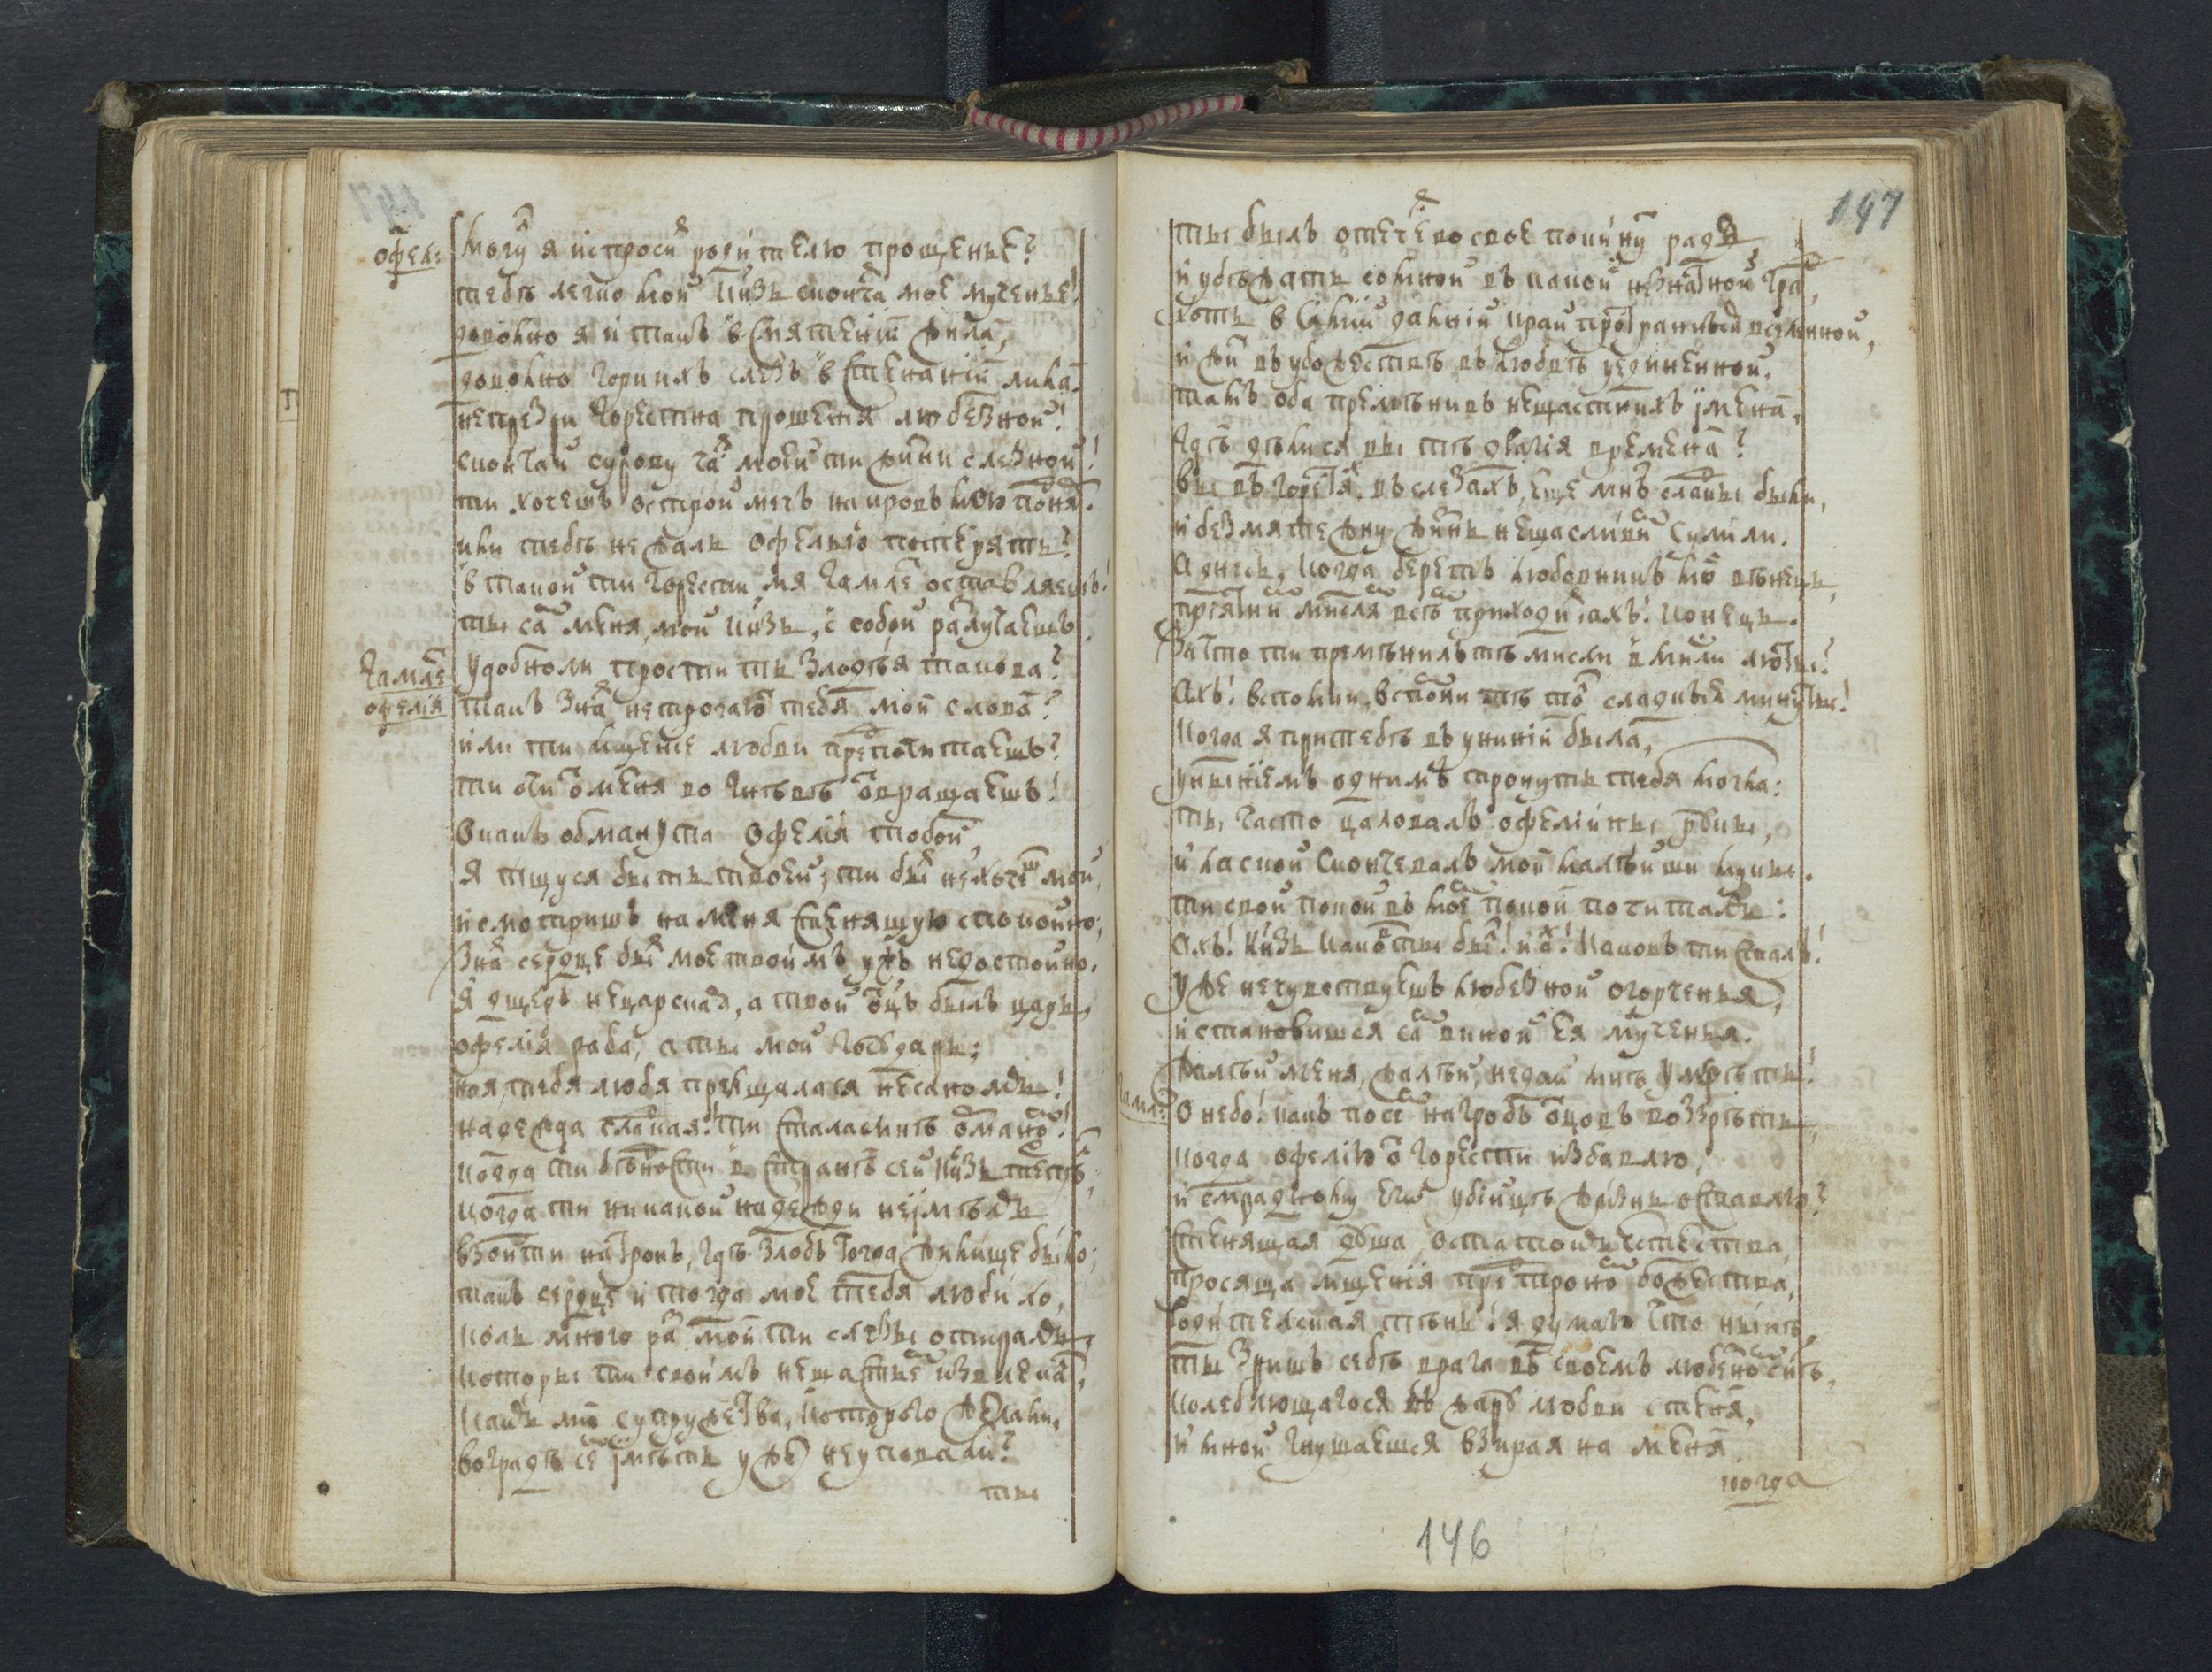 офел:
могу я испроси родителю прощенье?
тебѣ легко мой князь сконча мое мученье!
доволно я и такъ в смятеніи жила,
доволно горкихъ слезъ в стенаніи лила.
непрезри горестна прошенія любезной!
скончай сурову ча моей ти жизни слезной!
ти хочешъ острой мечъ на кровь мою поня.
или тебѣ не жаль офелью потерять?
в такой ти горести мя гамле оставляешъ!
ты са меня, мой князь, с собой разлучаешъ.
гамле
удобноли простить злодѣя такова?
офелія
такъ зна нетрогаю тебя мои слова?
или ти мщение любви препочитаешъ?
ти очи ѿменя во гнѣвѣ ѿвращаешъ!
О какъ обманута офелія тобой,
я тщуся быть твоей; ти бы нехоче мой,
и смотришъ на меня стенящую спокойно;
зна сердце бы мое твоимъ ужъ недостойно.
я дщерь нецарска, а твой ѿцъ былъ царь,
офелія раба, а ты мой государь;
коя, тебя любя прелщалася несаномъ!
надежда слакая! ти сталасинѣ ѡмано!
когда ти бѣности в странѣ сей князь терпѣ,
когда ти никакой надежди неімѣлъ
взойти натронъ, гдѣ злобѣ тогда жилище было;
такъ сердце и тогда мое тебя любило,
коль много ра мои ти слезы отиралъ,
которы ти своимъ нещастие извлека,
какъ мы супружетва, которого желали,
воградѣ се імѣть уже неуповали?
ты
147
ты былъ отече во свое покину рад
и убѣжать сомной въ какой незнатной гра,
хоть в самий далній край пространныя вселенной,
и жи въ убожествѣ въ любвѣ уединенной.
тамъ оба премѣнивъ нещастнихъ імена,
гдѣ дѣлися вы тѣ драгія времена?
вы въ горетя, въ слезахъ, еще мнѣ слакы были,
и безмятежну жизнь нещасливи сулили.
А днесь, когда беретъ любовникъ мо вѣнецъ,
пріятни мисля всѣ приходи, ахъ! конецъ.
зачто ти премѣнилъ тѣ мисли в мили люты?
Ахъ! вспомни, вспомни тѣ то сладкія минуты!
когда я притебѣ въ унинии была,
униніемъ однимъ тронуть тебя могла:
ты часто цаловалъ офеліины рукы,
и ласкою скончевалъ мои малѣйши муки.
ти свой покой въ мое покои почиталъ:
Ахъ! князь како ты бы! и а! каковъ ти сталъ!
уже нечувствуешъ любезной огорченья,
и становишся са виной ея мученья.
жалѣй меня, жалѣй, недай мнѣ умерѣть!
гамл:
О небо! какъ посе нагробъ ѿцовъ воззрѣть,
когда офелію ѿ горести избавлю,
и смрадному его убійцѣ жизнь оставлю?
стенящая душа, остатокъ естества,
просяща мщенія пре троно божества,
родителская тѣнь! я думаю что нынѣ,
ты зришъ себѣ врага въ своемъ любено синѣ,
колеблющагося въ жару любви стеня,
и мной гнушаешся взирая на меня.
когда
146